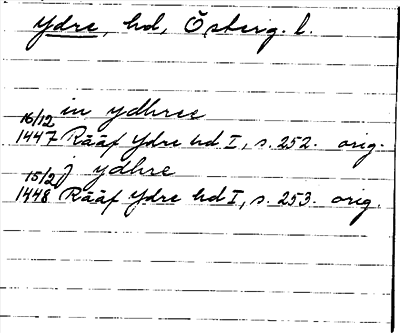 Ydre, hd, Österg. l.
in ydhree
16/12
1447 Rääf Ydre hd I, s. 252. orig.
j ydhre
15/2
1448 Rääf Ydre hd I, s. 253. orig.